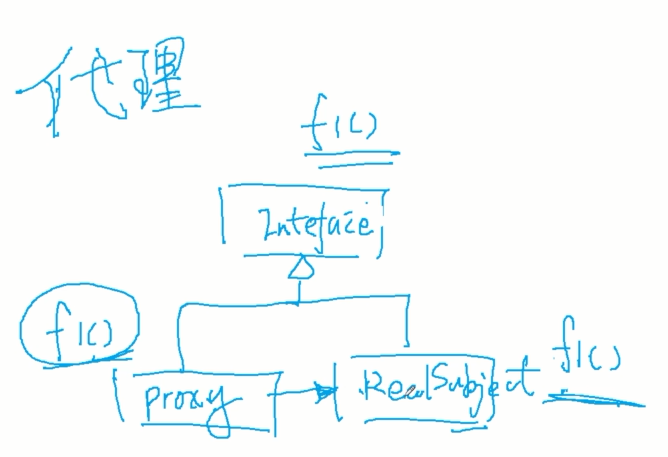 代理
f1()
Inteface
f1()
proxy
RealSubject
f1()